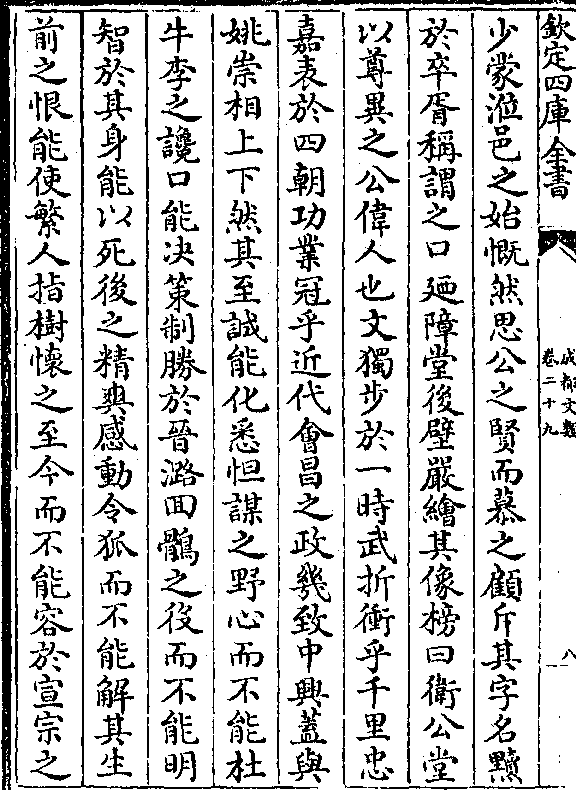 欽定四庫全書
成都文類
卷二十九
八
少蒙涖邑之始慨然思公之賢而慕之顧斥其字名黷
於卒胥稱謂之口廼障堂後壁嚴繪其像榜曰衛公堂
以尊異之公偉人也文獨步於一時武折衝乎千里忠
嘉表於四朝功業冠乎近代會昌之政幾致中興蓋與
姚崇相上下然其至誠能化悉怛謀之野心而不能杜
牛李之讒口能決策制勝於晉潞回鶻之役而不能明
智於其身能以死後之精爽感動令狐而不能解其生
前之恨能使繁人指樹懷之至今而不能容於宣宗之